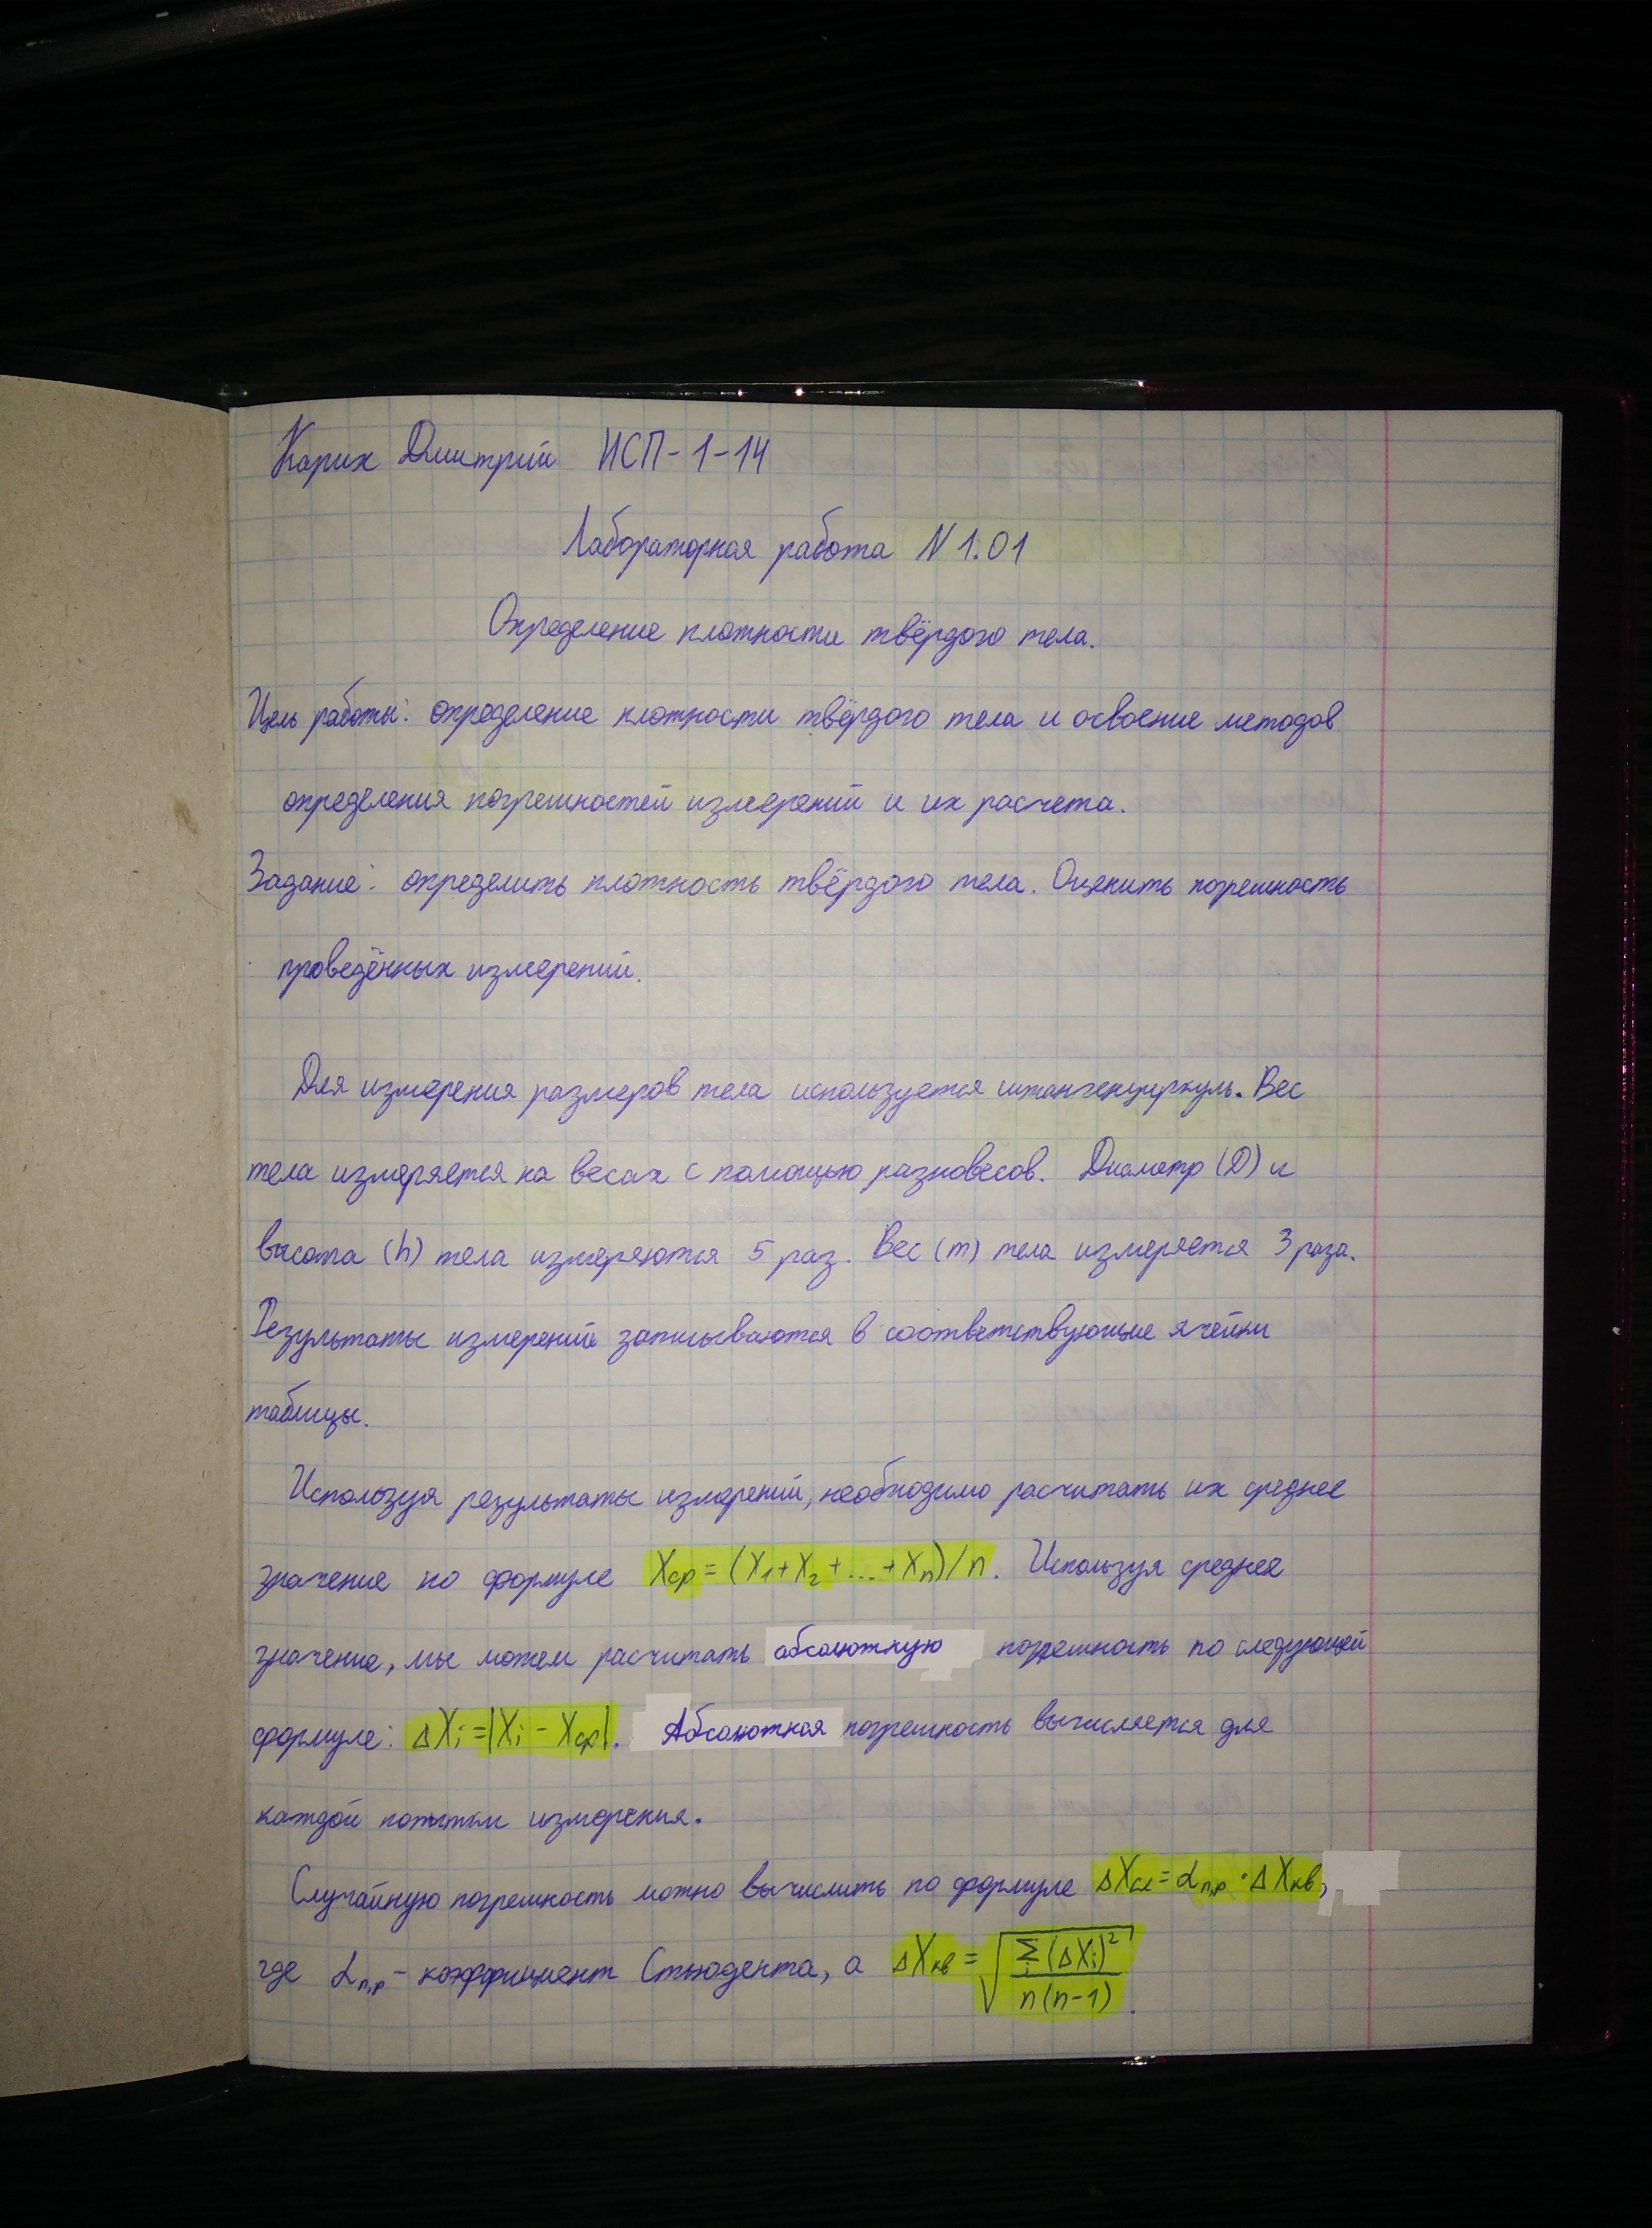 Карих Дмитрий ИСП-1-14
Лабораторная работа N 1.01
Определение плотности твёрдого тела.
Цель работы: определение плотности твёрдого тела и освоение методов
определения погрешностей измерений и их расчета.
Задание: определить плотность твёрдого тела. Оценить погрешность
проведённых измерений.
Для измерения размеров тела используется штангенциркуль. Вес
тела измеряется на весах с помощью разновесов. Диаметр (D) и
высота (h) тела измеряются 5 раз. Вес (m) тела измеряется 3 раза.
Результаты измерений записываются в соответствующие ячейки
таблицы.
Используя результаты измерений, необходимо расчитать их среднее
значение по формуле Xср = (X₁+X₂+...+Xn)/n. Используя среднее
значение, мы можем расчитать абсолютную погрешность по следующей
формуле: ΔXi = |Xi - Xср|. Абсолютная погрешность вычисляется для
каждой попытки измерения.
Случайную погрешность можно вычислить по формуле ΔXсл = αn,p · ΔXкв,
где αn,p - коэффициент Стьюдента, а ΔXкв = √(Σi (ΔXi)² / n(n-1)).